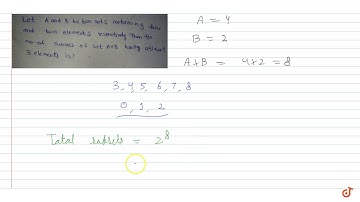 Let A and B be two sets containing four
and two elements respectively Then the
no of subsets of set A×B having atleast
3 elements is?
A = 4
B = 2
A×B = 4×2 = 8
3, 4, 5, 6, 7, 8
0, 1, 2
Total subsets = 2^8